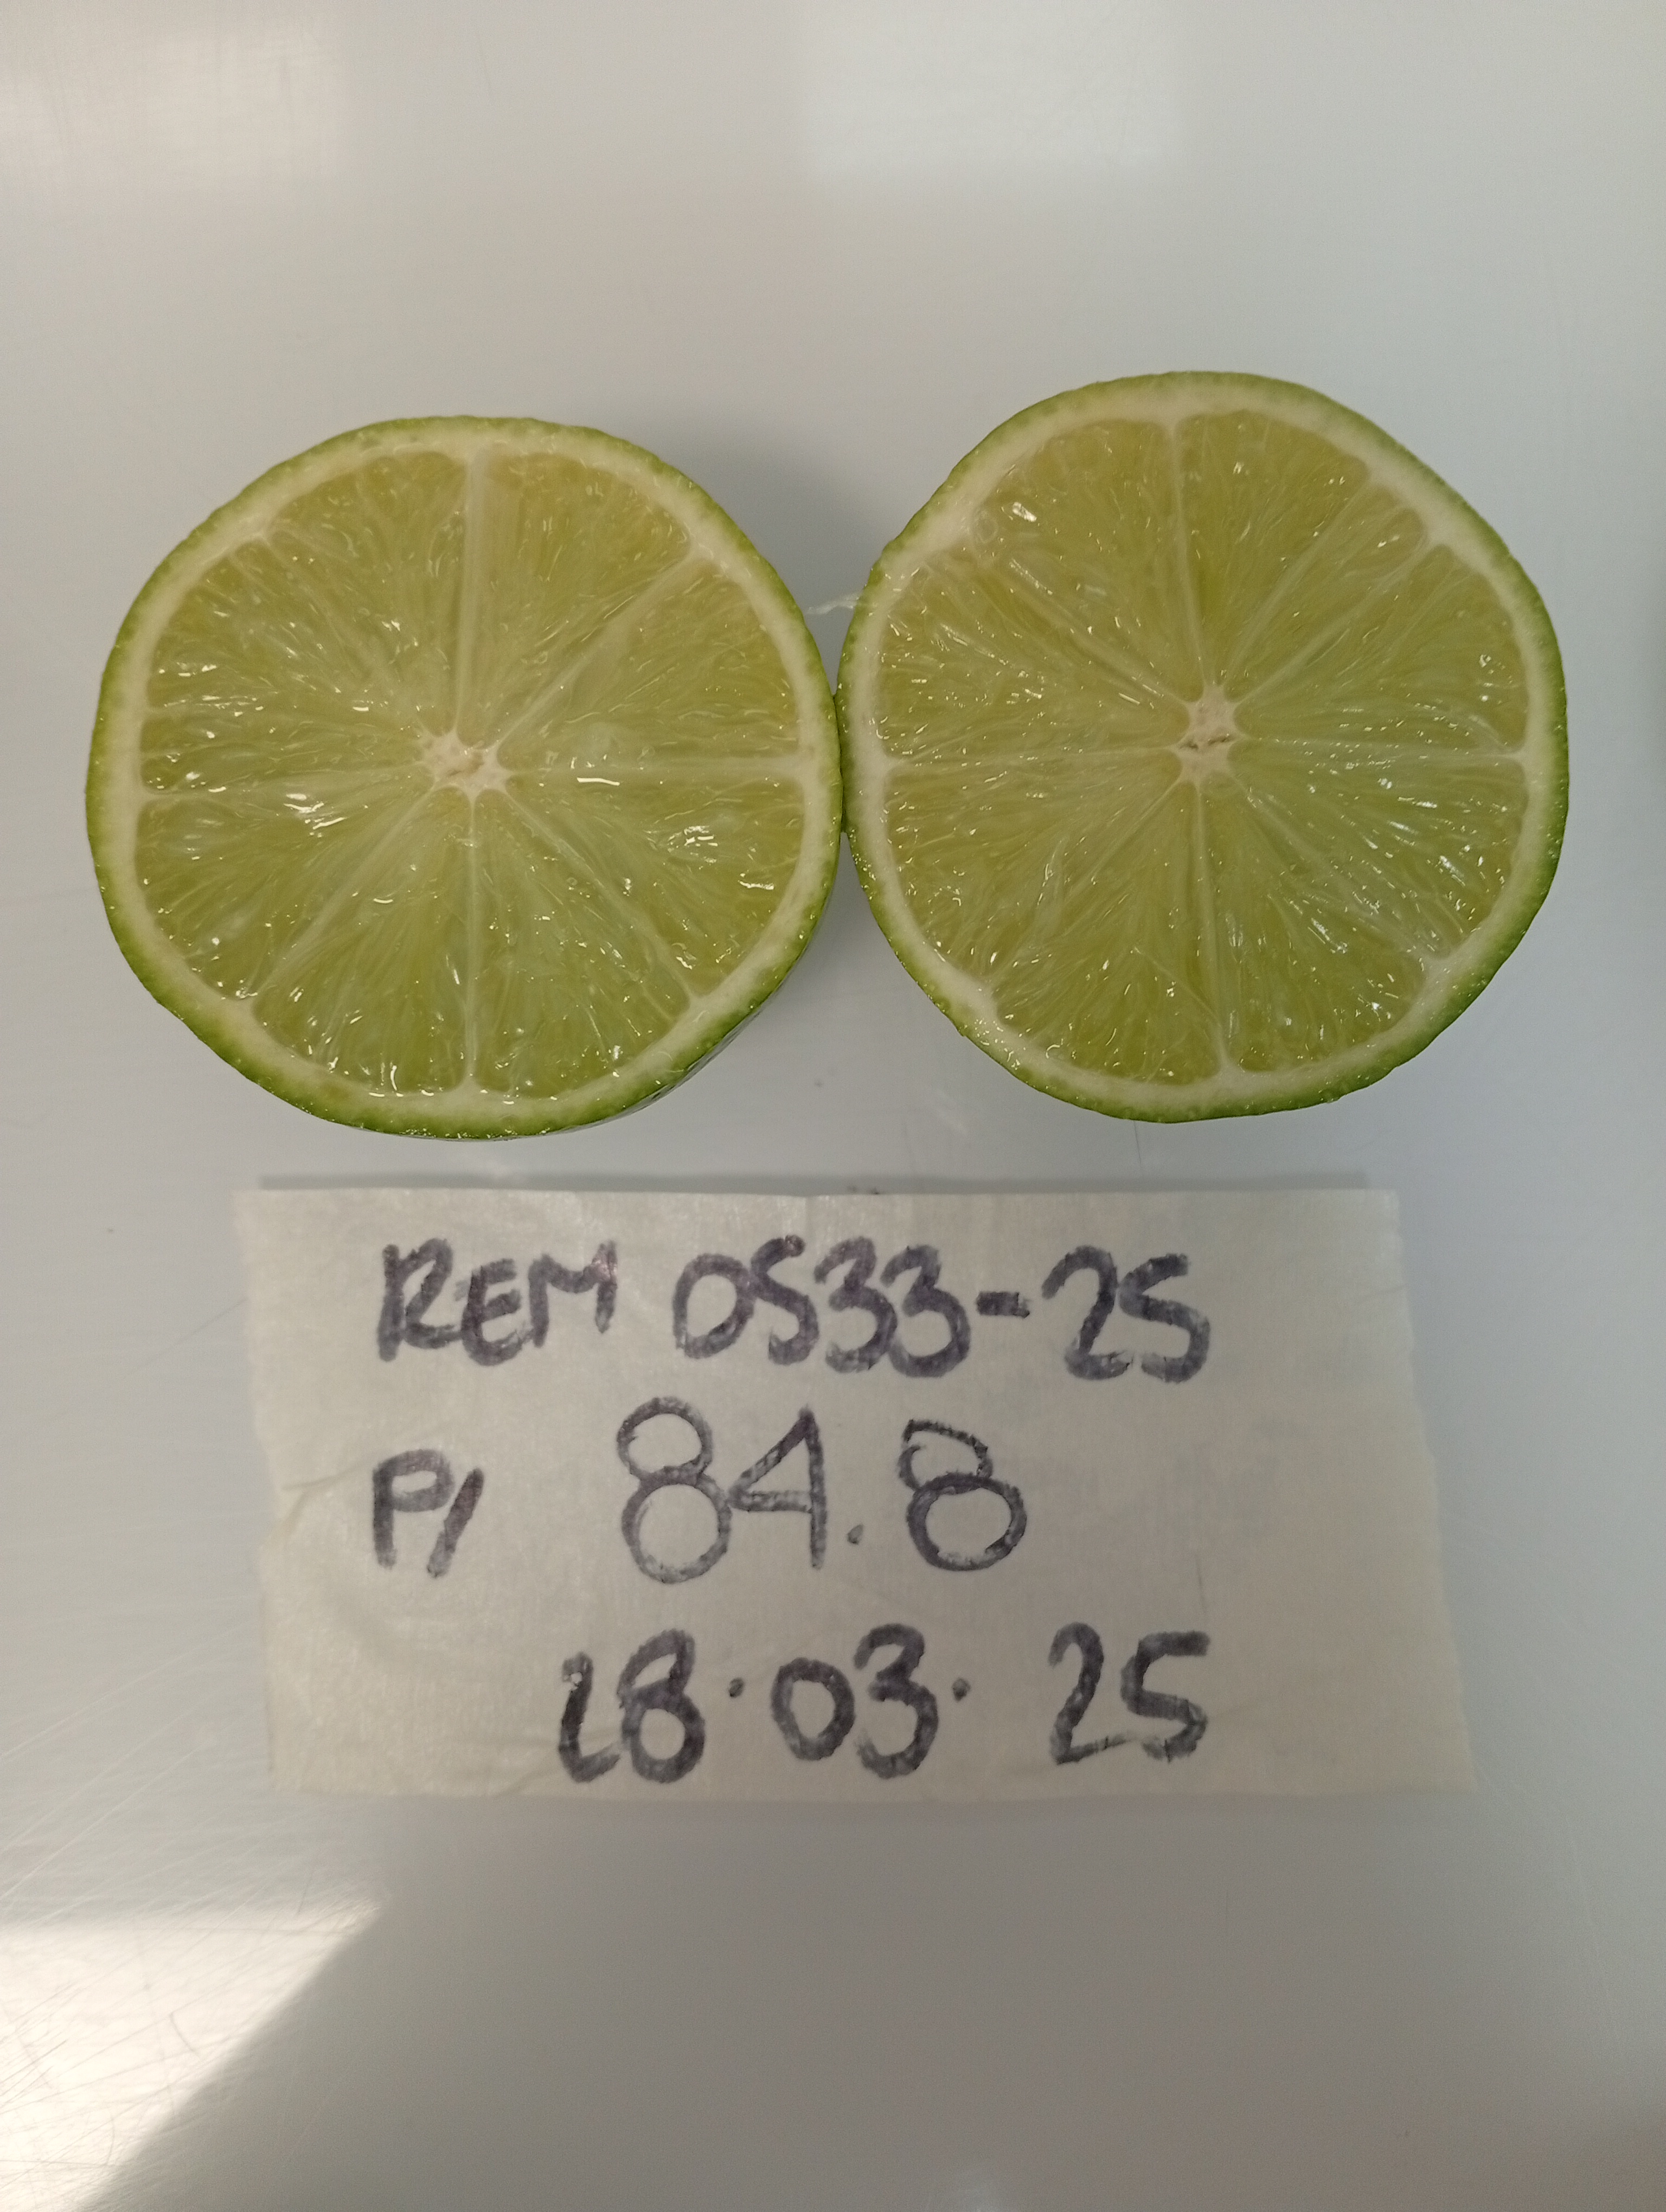 REM 0533-25
P/ 84.8
28.03.25